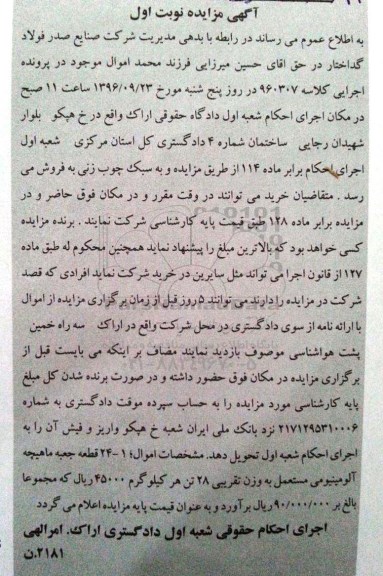 آگهی مزایده نوبت اول
به اطلاع عموم می رساند در رابطه با بدهی مدیریت شرکت صنایع صدر فولاد
گداختار در حق اقای حسین میرزایی فرزند محمد اموال موجود در پرونده
اجرایی کلاسه ۹۶۰۳۰۷ در روز پنج شنبه مورخ ۱۳۹۶/۰۹/۲۳ ساعت ۱۱ صبح
در مکان اجرای احکام شعبه اول دادگاه حقوقی اراک واقع در خ هپکو بلوار
شهیدان رجایی ساختمان شماره ۴ دادگستری کل استان مرکزی شعبه اول
اجرای احکام برابر ماده ۱۱۴ از طریق مزایده و به سبک چوب زنی به فروش می
رسد . متقاضیان خرید می توانند در وقت مقرر و در مکان فوق حاضر و در
مزایده برابر ماده ۱۲۸ طبق قیمت پایه کارشناسی شرکت نمایند . برنده مزایده
کسی خواهد بود که بالاترین مبلغ را پیشنهاد نماید همچنین محکوم له طبق ماده
۱۲۷ از قانون اجرا می تواند مثل سایرین در خرید شرکت نماید افرادی که قصد
شرکت در مزایده را دارند می توانند ۵ روز قبل از زمان برگزاری مزایده از اموال
با ارائه نامه از سوی دادگستری در محل شرکت واقع در اراک سه راه خمین
پشت هواشناسی موصوف بازدید نمایند مضاف بر اینکه می بایست قبل از
برگزاری مزایده در مکان فوق حضور داشته و در صورت برنده شدن کل مبلغ
پایه کارشناسی مورد مزایده را به حساب سپرده موقت دادگستری به شماره
۲۱۷۱۲۹۵۳۱۰۰۰۶ نزد بانک ملی ایران شعبه خ هپکو واریز و فیش آن را به
اجرای احکام شعبه اول تحویل دهد. مشخصات اموال؛ ۱-۲۴ قطعه جعبه ماهیچه
آلومینیومی مستعمل به وزن تقریبی ۲۸ تن هر کیلو گرم ۴۵۰۰۰ ریال که مجموعا
بالغ بر ۹۰/۰۰۰/۰۰۰ ریال برآورد و به عنوان قیمت پایه مزایده اعلام می گردد
اجرای احکام حقوقی شعبه اول دادگستری اراک. امرالهی
۲۱۸۱.ن